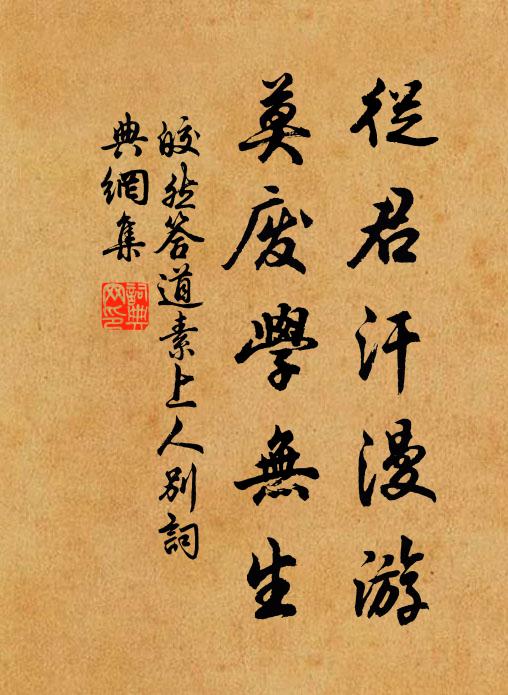 從君汗漫游
莫廢學無生
皎然答道素上人別詞
典網集
詞典網印